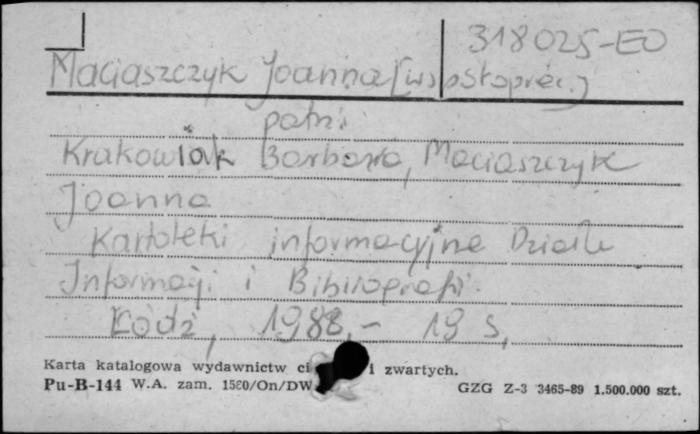 318025-EO
Maciaszczyk Joanna [współoprac.]
patrz:
Krakowiak Barbara, Maciaszczyk
Joanna
Kartoteki informacyjne Działu
Informacji i Bibliografii.
Łódź, 1988,- 19 s,
Karta katalogowa wydawnictw i zwartych.
Pu-B-144 W.A. zam. 1580/On/DW GZG Z-3 3465-89 1.500.000 szt.